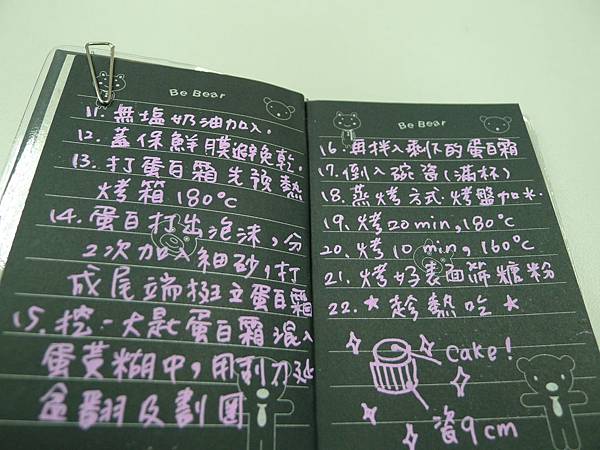 Be Bear
11. 無塩奶油加入.
12. 蓋保鮮膜避免乾.
13. 打蛋白霜先預熱
烤箱 180°C
14. 蛋白打出泡沫,分
2次加入細砂,打
成尾端挺立蛋白霜
15. 挖一大匙蛋白霜混入
蛋黃糊中,用刮刀延
盆翻及劃圈
Be Bear
16. 再拌入剩下的蛋白霜
17. 倒入碗資(滿杯)
18. 蒸烤方式.烤盤加水.
19. 烤20min,180°C
20. 烤10min,160°C
21. 烤好表面篩糖粉
22. ★趁熱吃★
cake!
資9cm